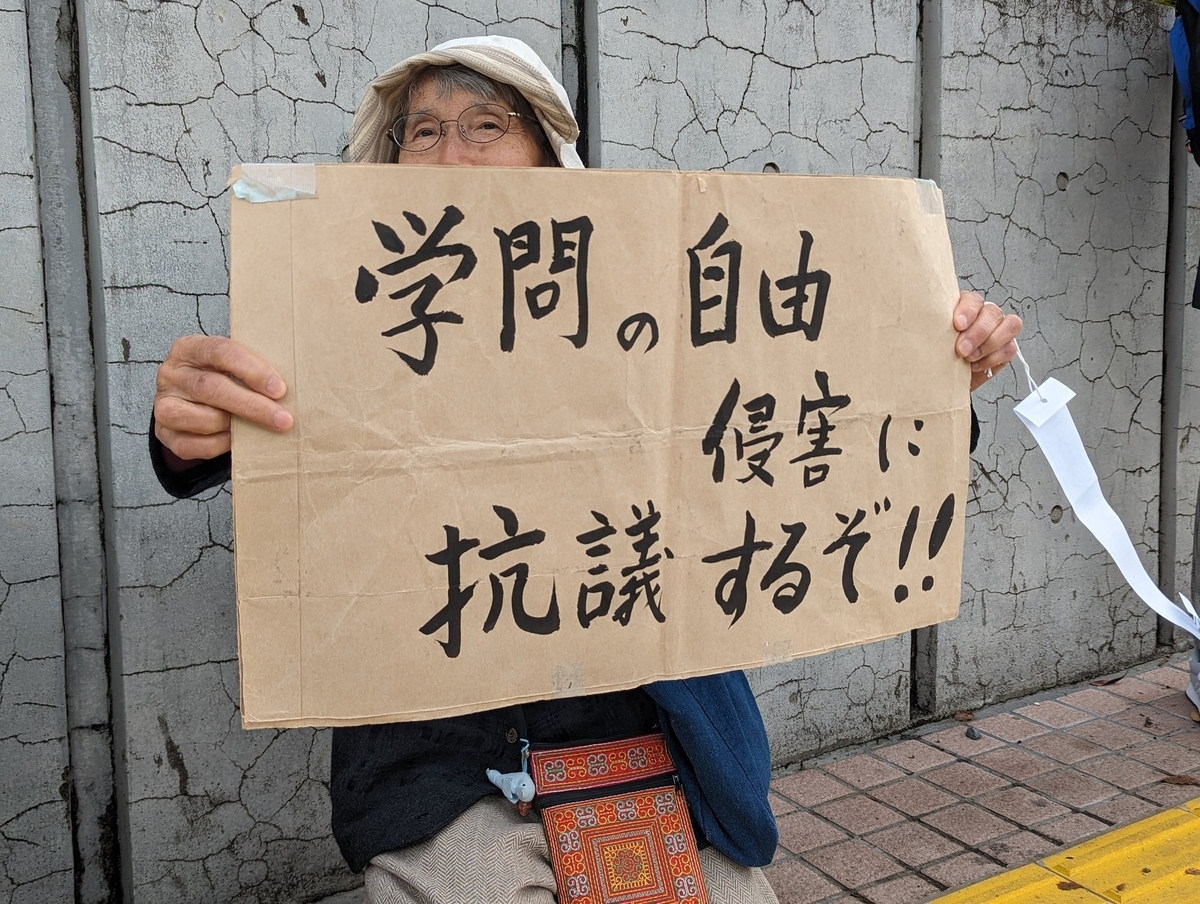 学問の自由
侵害に
抗議するぞ!!